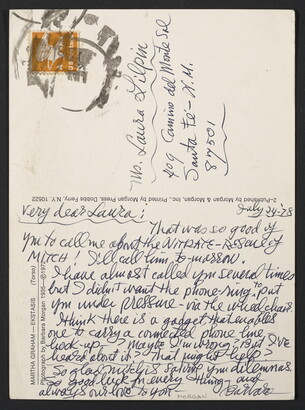 Ms. Laura Gilpin
409 Camino del Monte Sol
Santa Fe - N.M.
87501
2-Published by Morgan & Morgan, Inc., Printed by Morgan Press, Dobbs Ferry, N.Y. 10522
MARTHA GRAHAM — EKSTASIS (Torso)
Photograph by Barbara Morgan 1935
July 24-78
Very dear Laura:
That was so good of
you to call me about the NITRATE-Rescue of
MITCH! I'll call him to-morrow.
I have almost called you several times
but I didn't want the phone-ring to put
you under pressure - via the wheel chair.
I think there is a gadget that enables
one to carry a connected phone line
hook-up. I maybe I'm wrong? But I've
heard about it? That might help?
So glad Mitch is solving your dilemmas.
So good luck in every thing - and
always our love to you
Barbara
MORGAN